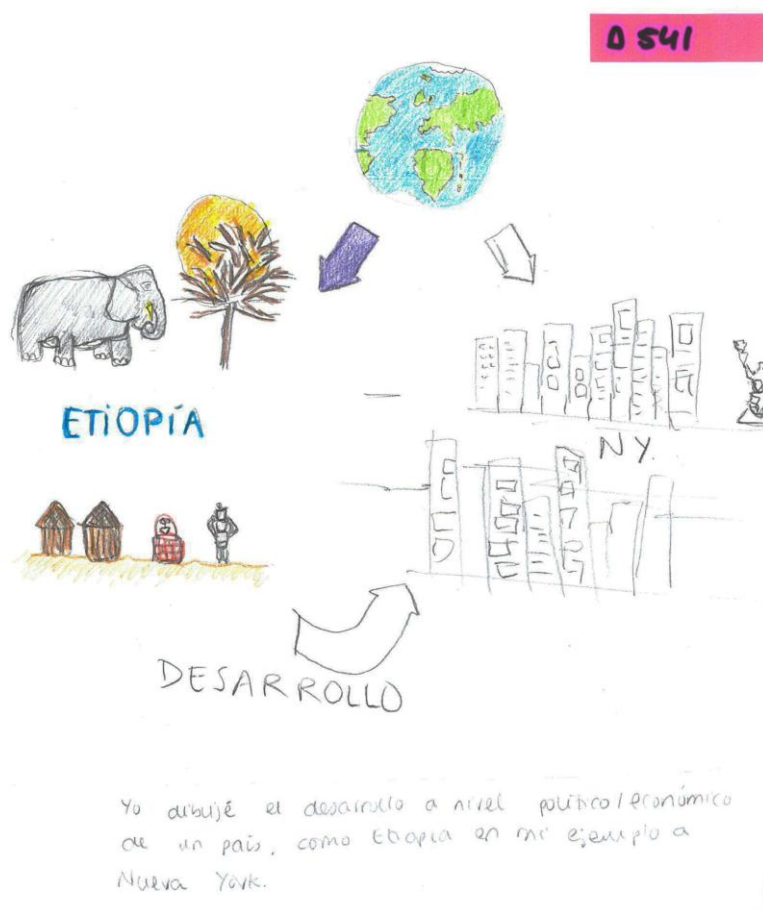 D 541
ETIOPÍA
N Y.
DESARROLLO
Yo dibujé el desarrollo a nivel político/económico
de un país, como Etiopia en mi ejemplo a
Nueva York.